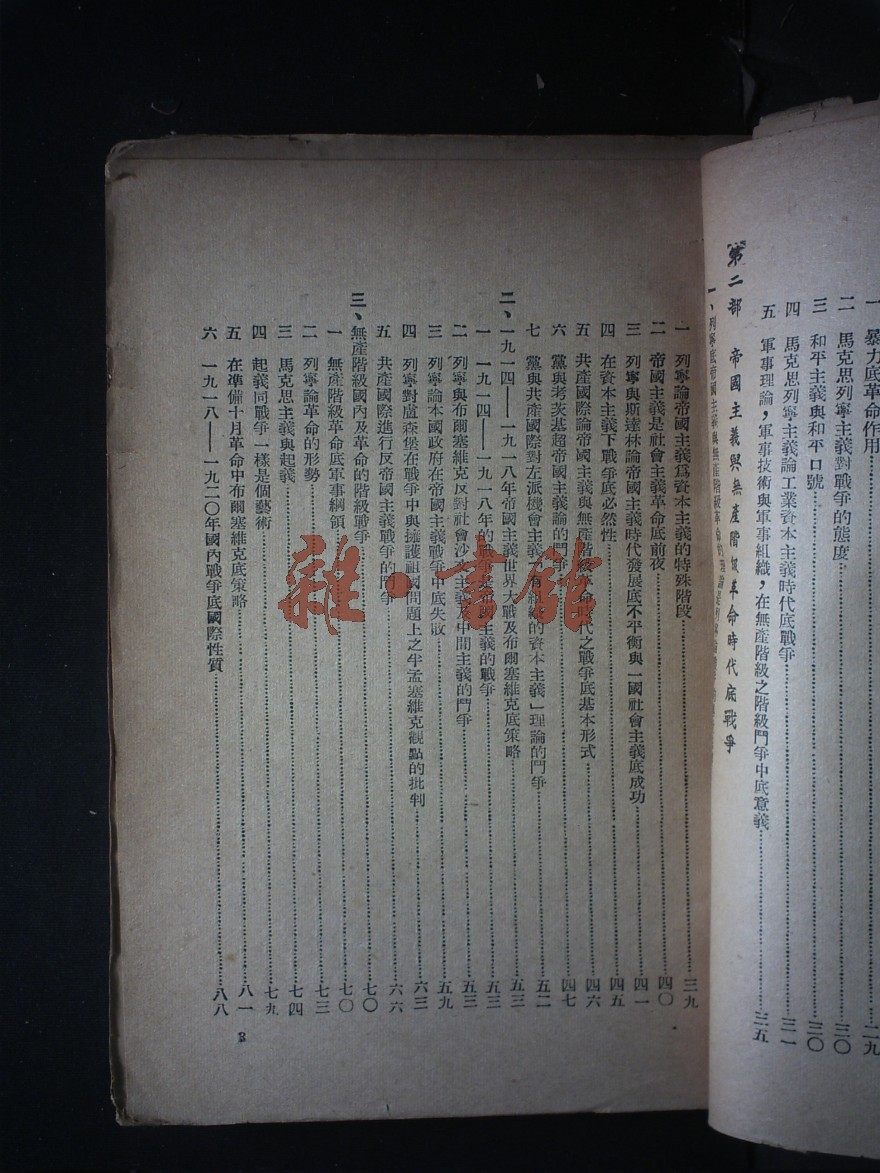 一 暴力底革命作用……二九
二 馬克思列寧主義對戰爭的態度……三〇
三 和平主義與和平口號……三〇
四 馬克思列寧主義論工業資本主義時代底戰爭……三一
五 軍事理論，軍事技術與軍事組織，在無產階級之階級鬥爭中底意義……三五
第二部 帝國主義與無產階級革命時代底戰爭
一、列寧底帝國主義與無產階級革命的理論是
一 列寧論帝國主義爲資本主義的特殊階段……三九
二 帝國主義是社會主義革命底前夜……四〇
三 列寧與斯達林論帝國主義時代發展底不平衡與一國社會主義底成功……四一
四 在資本主義下戰爭底必然性……四五
五 共產國際論帝國主義與無產階級革命時代之戰爭底基本形式……四六
六 黨與考茨基超帝國主義論的鬥爭……四七
七 黨與共產國際對左派機會主義「有組織的資本主義」理論的鬥爭……五二
二、一九一四——一九一八年帝國主義世界大戰及布爾塞維克底策略……五三
一 一九一四——一九一八年的戰爭是帝國主義的戰爭……五三
二 列寧與布爾塞維克反對社會沙文主義及中間主義的鬥爭……五三
三 列寧論本國政府在帝國主義戰爭中底失敗……五九
四 列寧對盧森堡在戰爭中與擁護祖國問題上之半孟塞維克觀點的批判……六三
五 共產國際進行反帝國主義戰爭的鬥爭……六六
三、無產階級國內及革命的階級戰爭……七〇
一 無產階級革命底軍事綱領……七〇
二 列寧論革命的形勢……七三
三 馬克思主義與起義……七四
四 起義同戰爭一樣是個藝術……七九
五 在準備十月革命中布爾塞維克底策略……八一
六 一九一八——一九二〇年國內戰爭底國際性質……八八
3
雜·書館